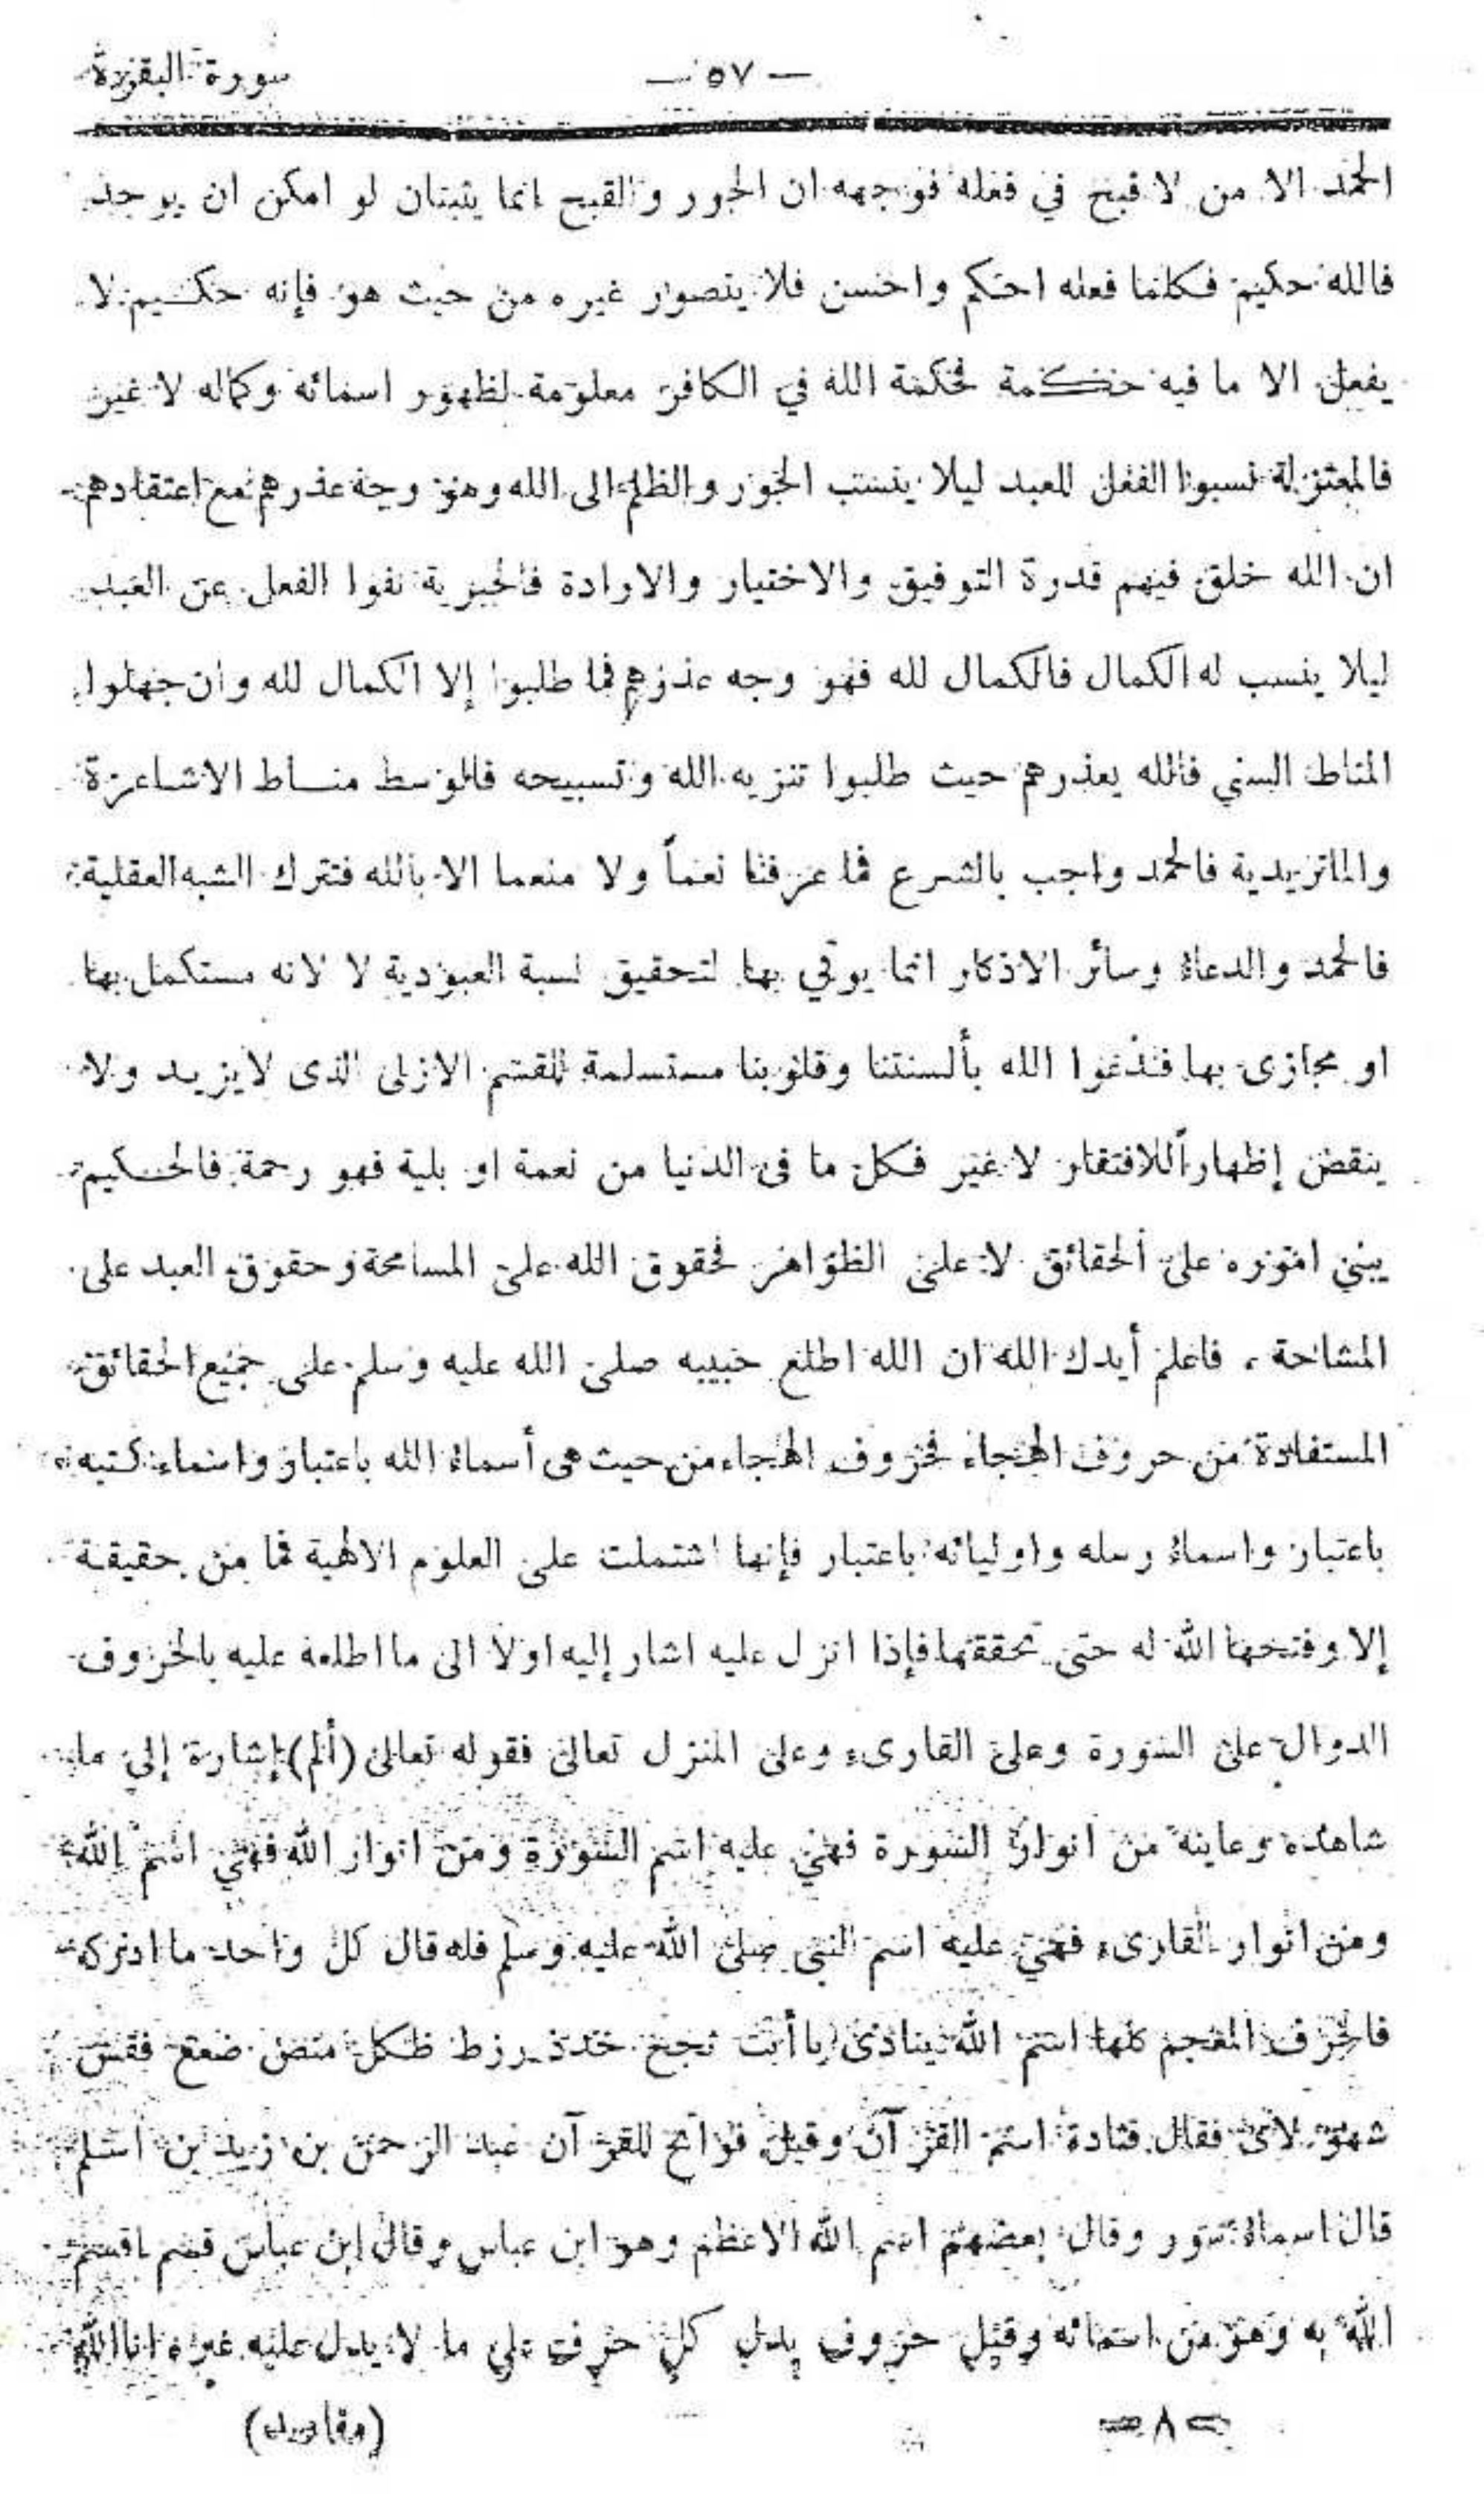 سورة البقرة
— ٥٧ —
الحمد الا من لا قبح في فعله فوجهه ان الجور والقبح انما يثبتان لو امكن ان يوجد
فالله حكيم فكلما فعله احكم واحسن فلا يتصور غيره من حيث هو فإنه حكيم لا
يفعل الا ما فيه حكمة فحكمة الله في الكافر معلومة لظهور اسمائه وكماله لا غير
فالمعتزلة نسبوا الفعل للعبد ليلا ينسب الجور والظلم الى الله وهو وجه عذرهم مع اعتقادهم
ان الله خلق فيهم قدرة التوفيق والاختيار والارادة فالجبرية نفوا الفعل عن العبد
ليلا ينسب له الكمال فالكمال لله فهو وجه عذرهم فما طلبوا إلا الكمال لله وان جهلوا
المناط السني فالله يعذرهم حيث طلبوا تنزيه الله وتسبيحه فالوسط منــاط الاشاعرة
والماتريدية فالحمد واجب بالشرع فما عرفنا نعماً ولا منعما الا بالله فتترك الشبه العقلية
فالحمد والدعاء وسائر الاذكار انما يوتي بها لتحقيق نسبة العبودية لا لانه مستكمل بها
او مجازى بها فندعوا الله بألسنتنا وقلوبنا مستسلمة للقسم الازلى الذى لايزيد ولا
ينقض إظهاراً للافتقار لا غير فكل ما فى الدنيا من نعمة او بلية فهو رحمة فالحكيم
يبني اموره على الحقائق لا على الظواهر فحقوق الله على المسامحة وحقوق العبد على
المشاحة ، فاعلم أيدك الله ان الله اطلع حبيبه صلى الله عليه وسلم على جميع الحقائق
المستفادة من حروف الهجاء فحروف الهجاء من حيث هى أسماء الله باعتبار واسماء كتبه
باعتبار واسماء رسله واوليائه باعتبار فإنها اشتملت على العلوم الالهية فما من حقيقة
إلا وفتحها الله له حتى تحققها فإذا انزل عليه اشار إليه اولا الى ما اطلعه عليه بالحروف
الدوال على السورة وعلى القارىء وعلى المنزل تعالى فقوله تعالى (ألم) إشارة إلى ما
شاهده وعاينه من انوار السورة فهي عليه اسم السورة ومن انوار الله فهي اسم الله
ومن انوار القارىء فهي عليه اسم النبى صلى الله عليه وسلم فله قال كل واحد ما ادركه
فاحرف المعجم كلها اسم الله ينادى يا أبت ثجح خدذ رزط ظكل منص ضعغ فقس
شهو لاى فقال قتادة اسم القرآن وقيل فواتح للقرآن عبد الرحمن بن زيد بن اسلم
قال اسماء سور وقال بعضهم اسم الله الاعظم وهو ابن عباس وقال ابن عباس قسم اقسم
الله به وهو من اسمائه وقيل حروف يدل كل حرف على ما لا يدل عليه غيره انا الله
= ٨ =